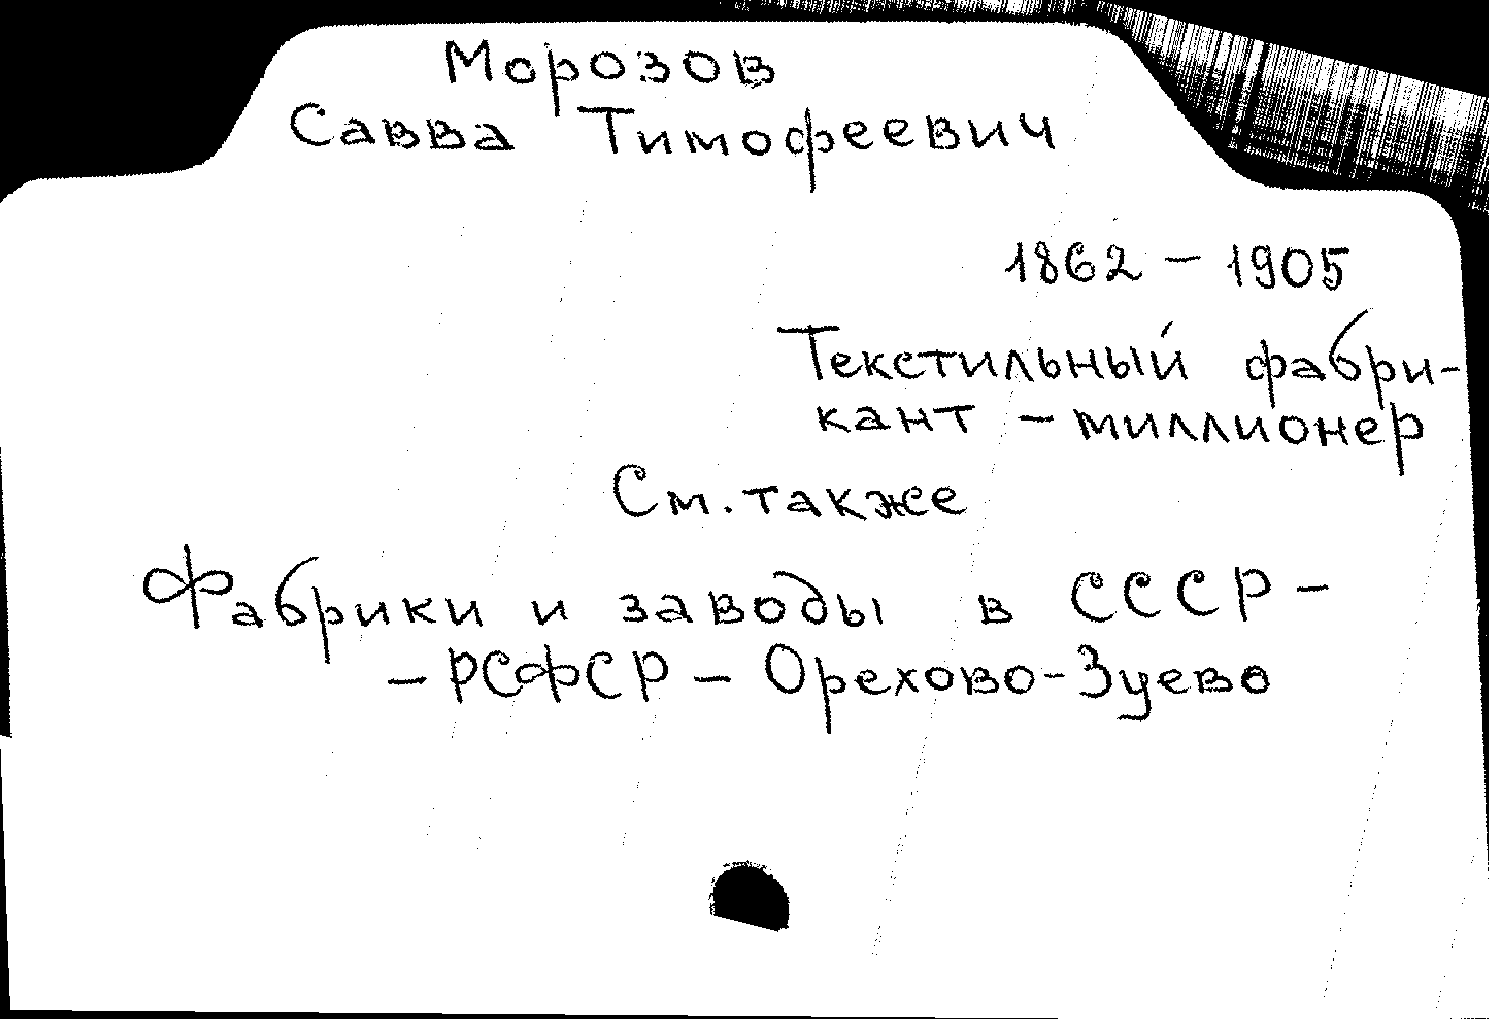 Морозов
Савва Тимофеевич
1862 – 1905
Текстильный фабри-
кант – миллионер
См. также
Фабрики и заводы в СССР –
– РСФСР – Орехово-Зуево